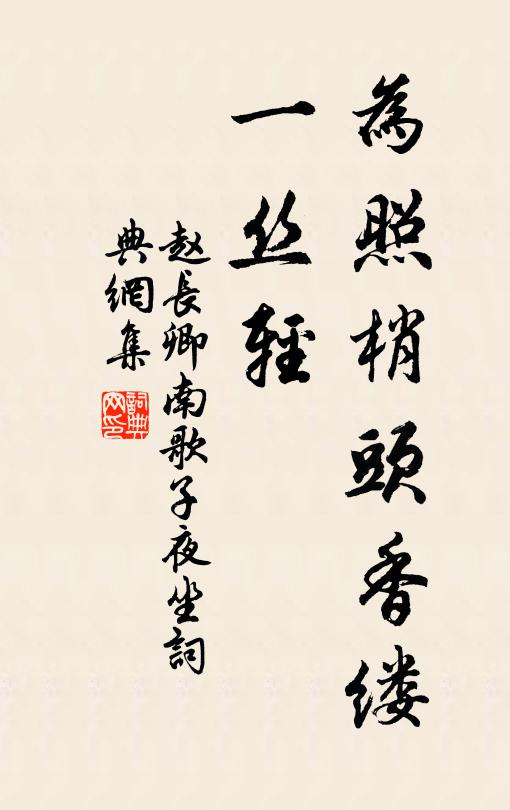 為照梢頭香缕
一丝輕
赵長卿南歌子夜坐詞
典網集
詞典网印